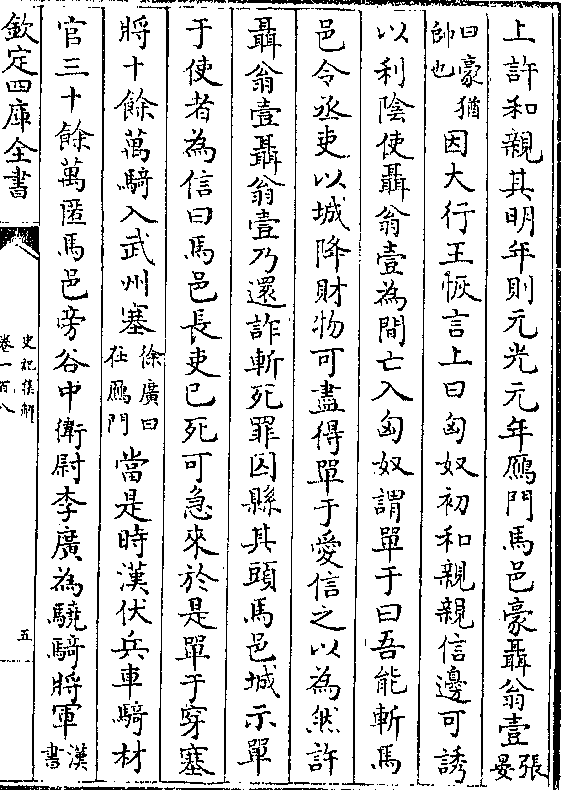 上許和親其明年則元光元年鴈門馬邑豪聶翁壹張晏
曰豪猶帥也因大行王恢言上曰匈奴初和親親信邊可誘
以利陰使聶翁壹為間亡入匈奴謂單于曰吾能斬馬
邑令丞吏以城降財物可盡得單于愛信之以為然許
聶翁壹聶翁壹乃還詐斬死罪囚縣其頭馬邑城示單
于使者為信曰馬邑長吏已死可急來於是單于穿塞
將十餘萬騎入武州塞徐廣曰在鴈門當是時漢伏兵車騎材
官三十餘萬匿馬邑旁谷中衛尉李廣為驍騎將軍漢書
欽定四庫全書
史記集解
卷一百八
五